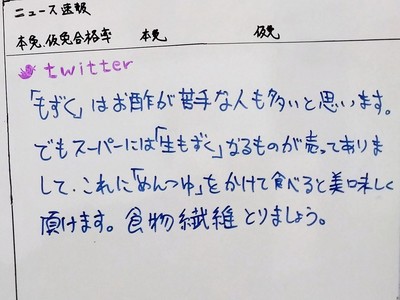 ニュース速報
本免、仮免合格率 本免 仮免
twitter
「もずく」はお酢が苦手な人も多いと思います。
でもスーパーには「生もずく」なるものが売ってありま
して、これに「めんつゆ」をかけて食べると美味しく
頂けます。食物繊維とりましょう。